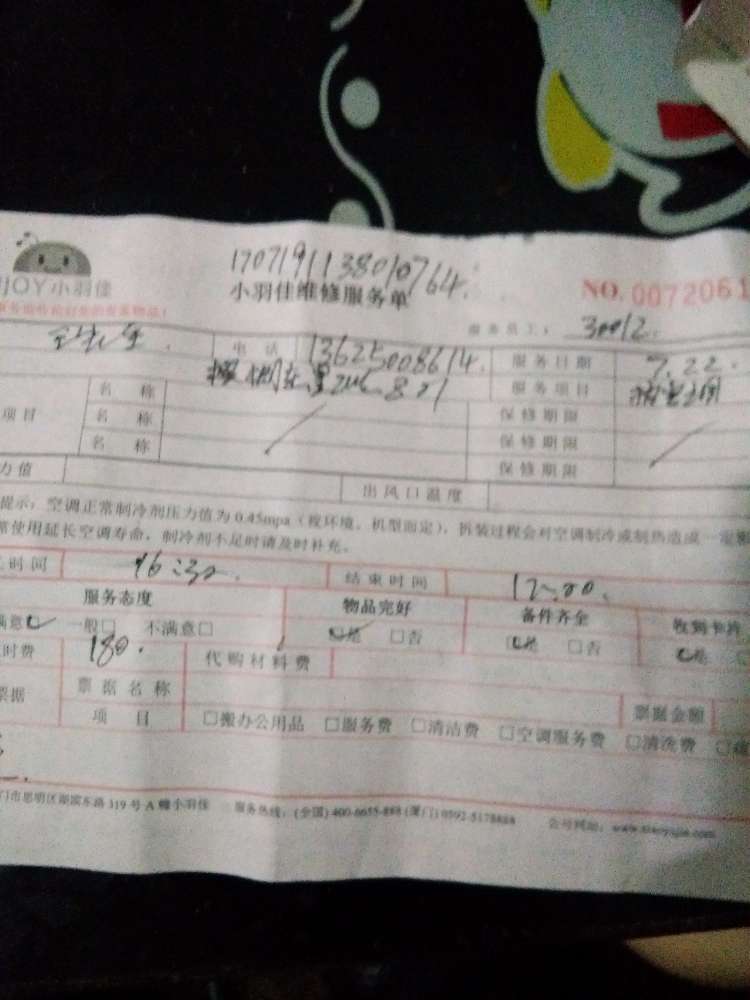 170719113800764.
JOY小羽佳
小羽佳维修服务单
NO. 0072061
服务员工: 30012.
电话 13625008614. 服务日期 7.22.
名称 服务项目
项目 名称 保修期限
名称 保修期限
保修期限
力值 出风口温度
提示: 空调正常制冷剂压力值为 0.45mpa (视环境、机型而定), 拆装过程会对空调制冷或制热造成一定
常使用延长空调寿命, 制冷剂不足时请及时补充。
时间 16:30. 结束时间 17:00.
服务态度 物品完好 备件齐全
满意 一般□ 不满意□ 是 □否 是 □否 是
时费 180. 代购材料费
票据 票据名称 票据金额
项目 □搬办公用品 □服务费 □清洁费 □空调服务费 □清洗费
门市思明区湖滨东路 319 号 A 幢小羽佳 服务热线: (全国) 400-6655-888 (厦门) 0592-5178888 公司网址: www.xiaoyujia.com